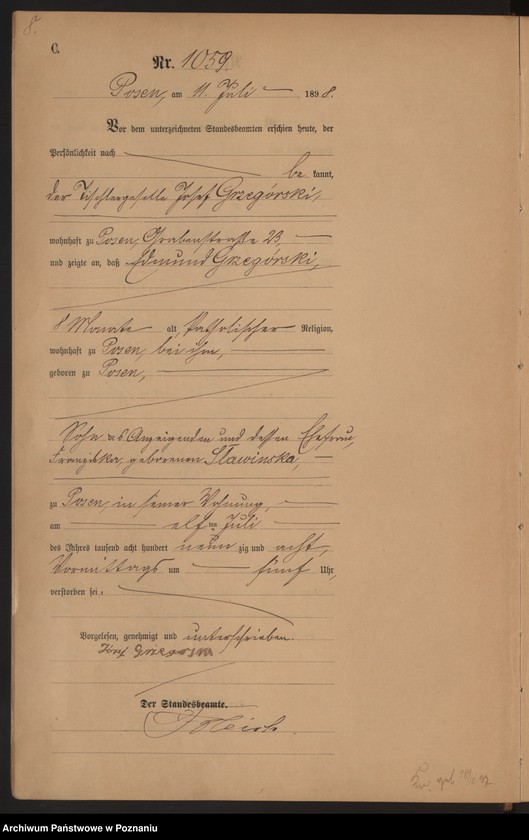 8.
C.
Nr. 1059.
Posen, am 11. Juli 1898.
Vor dem unterzeichneten Standesbeamten erschien heute, der
Persönlichkeit nach
be kannt,
der Tischlergeselle Josef Grzegórski,
wohnhaft zu Posen, Grabenstraße 23,
und zeigte an, daß Edmund Grzegórski,
8 Monate alt, katholischer Religion,
wohnhaft zu Posen, bei ihm,
geboren zu Posen,
Sohn des Anzeigenden und dessen Ehefrau,
Franziska, geborenen Sławinska,
zu Posen, in seiner Wohnung,
am elf ten Juli
des Jahres tausend acht hundert neun zig und acht,
Vormittags um fünf Uhr,
verstorben sei.
Vorgelesen, genehmigt und unterschrieben.
Józef
Der Standesbeamte.
Archiwum Państwowe w Poznaniu